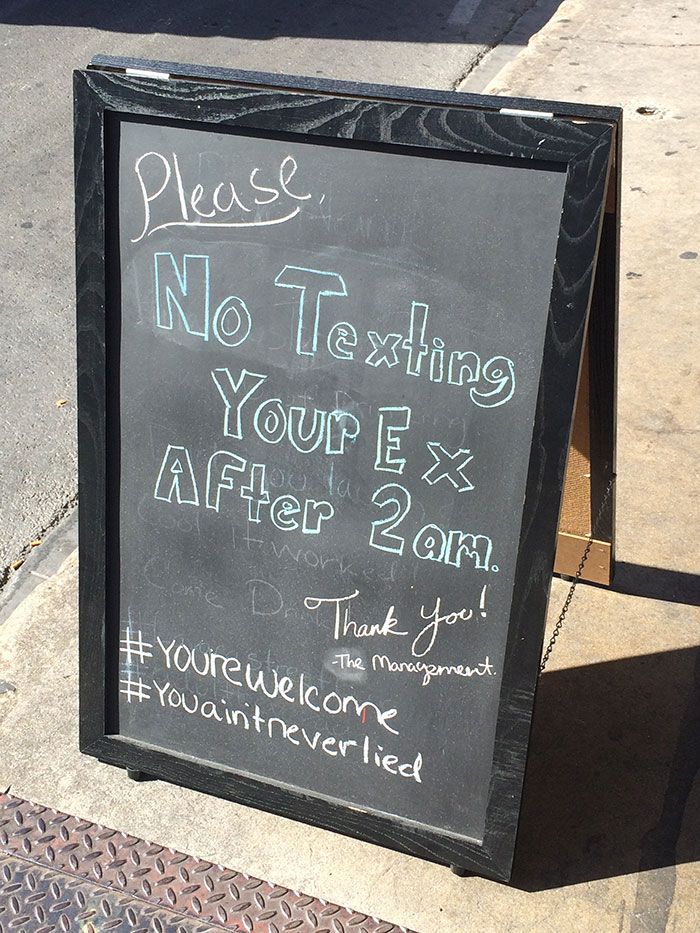 Please,
No Texting
Your Ex
After 2am.
Thank You!
-The Management.
#Yourewelcome
#Youain'tneverlied